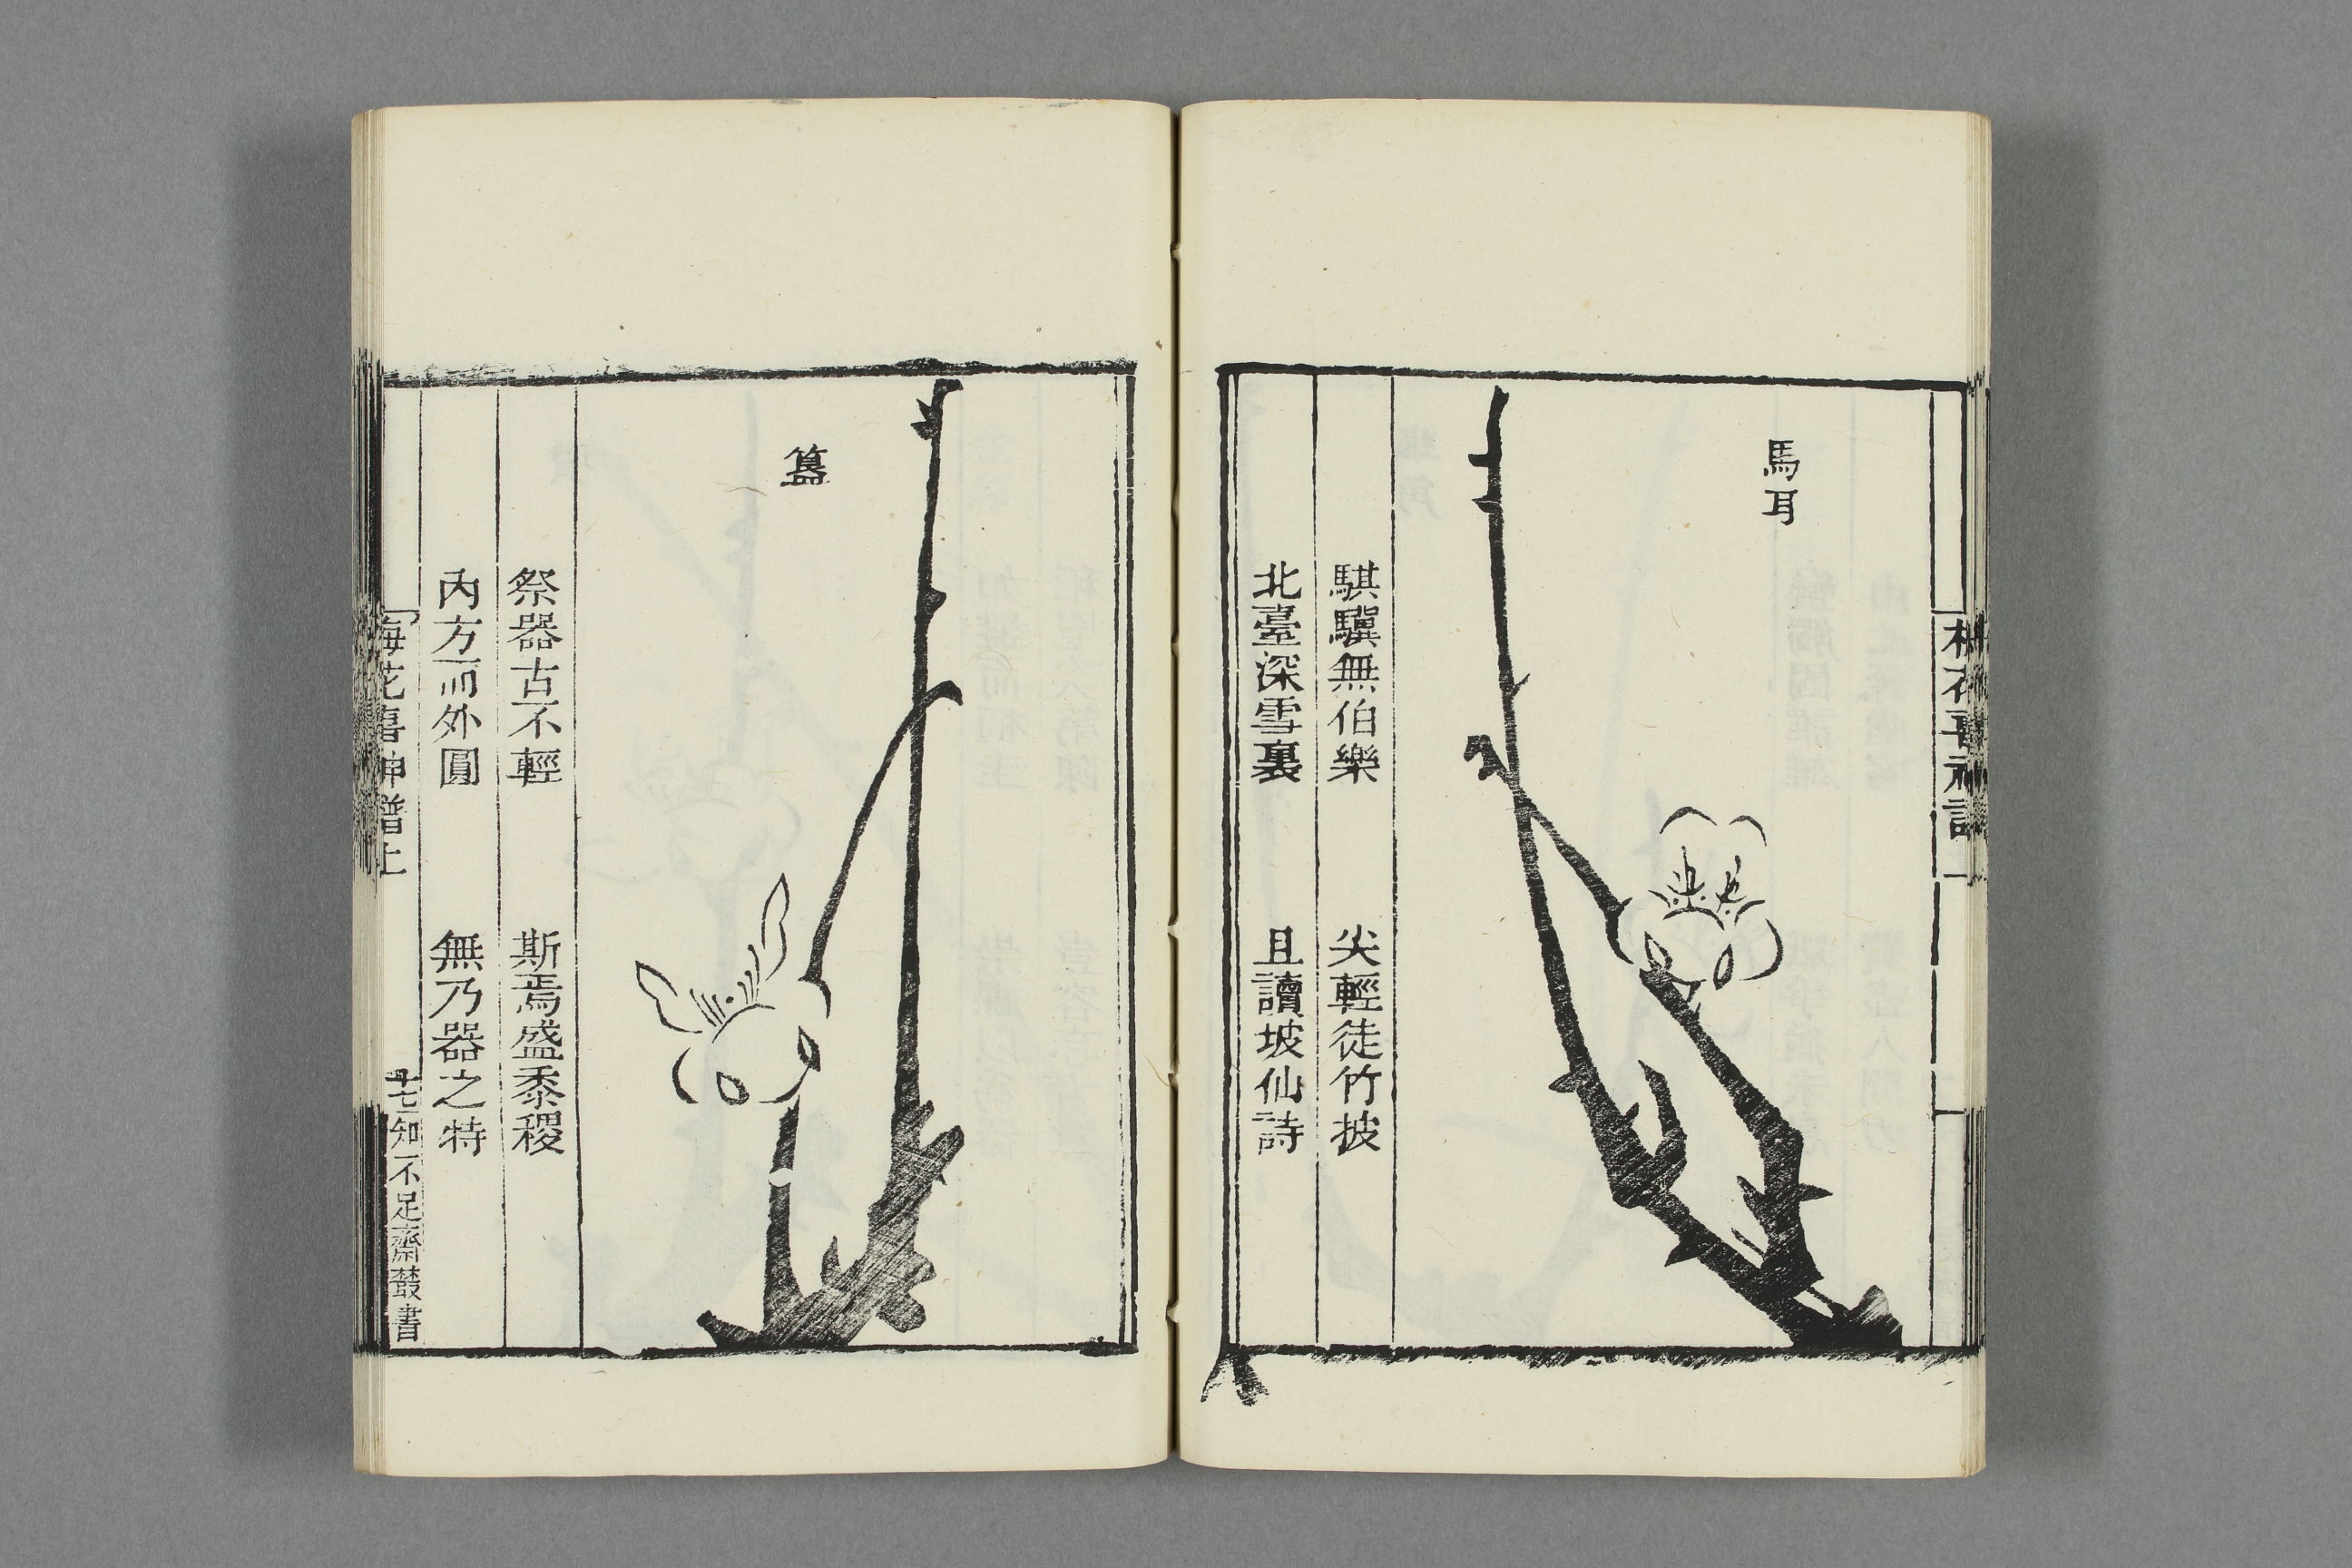 馬耳
騏驥無伯樂　尖輕徒竹披
北臺深雪裏　且讀坡仙詩
簋
祭器古不輕　斯焉盛黍稷
內方而外圓　無乃器之特
梅花喜神譜上
十七
知不足齋叢書